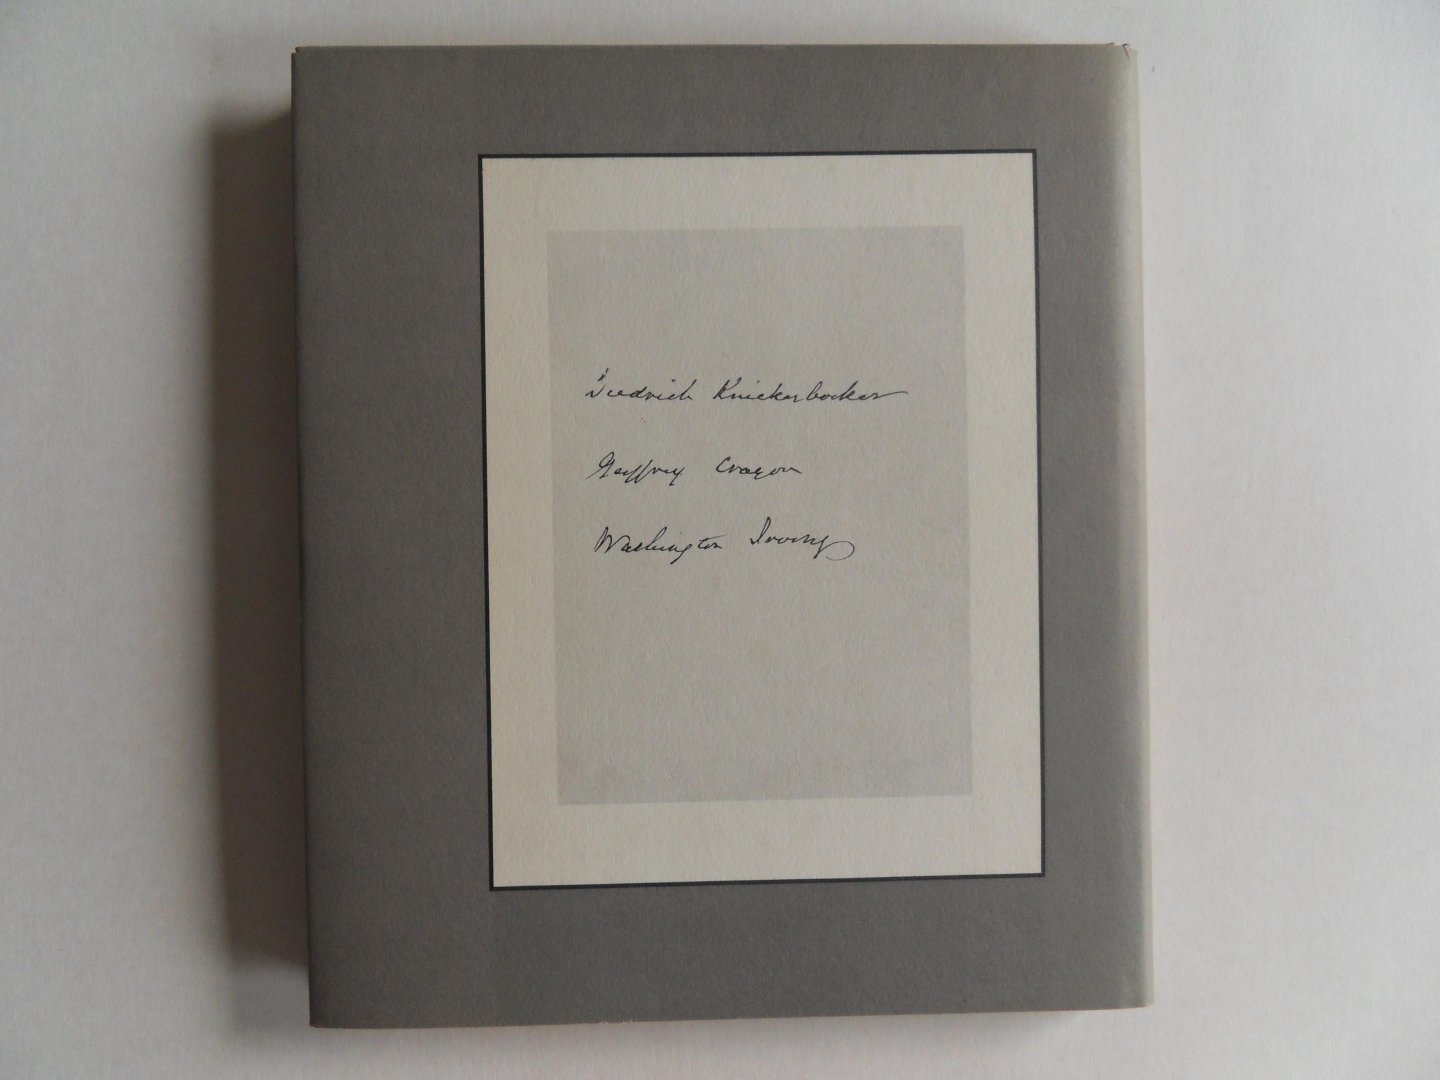 Diedrich Knickerbocker
Geoffrey Crayon
Washington Irving